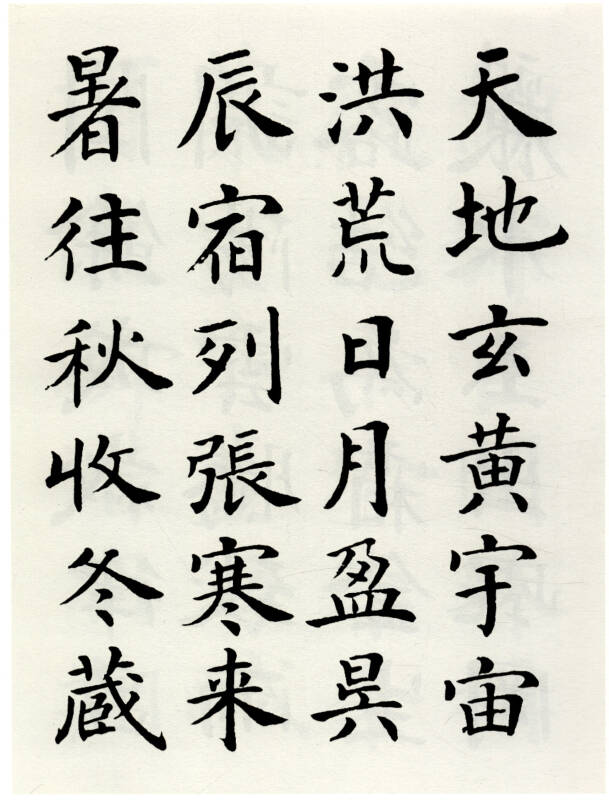 天地玄黄宇宙
洪荒日月盈昃
辰宿列張寒来
暑往秋收冬蔵